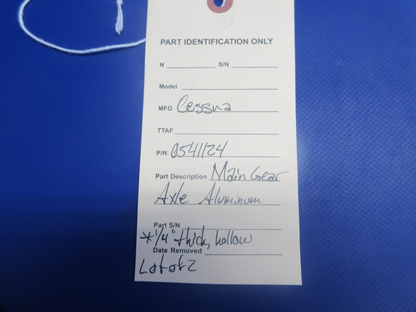 PART IDENTIFICATION ONLY
N S/N
Model
MFG Cessna
TTAF
P/N 0541124
Part Description Main Gear
Axle Aluminum
Part S/N
* 1/4" thick, hollow
Date Removed
Lot of 2